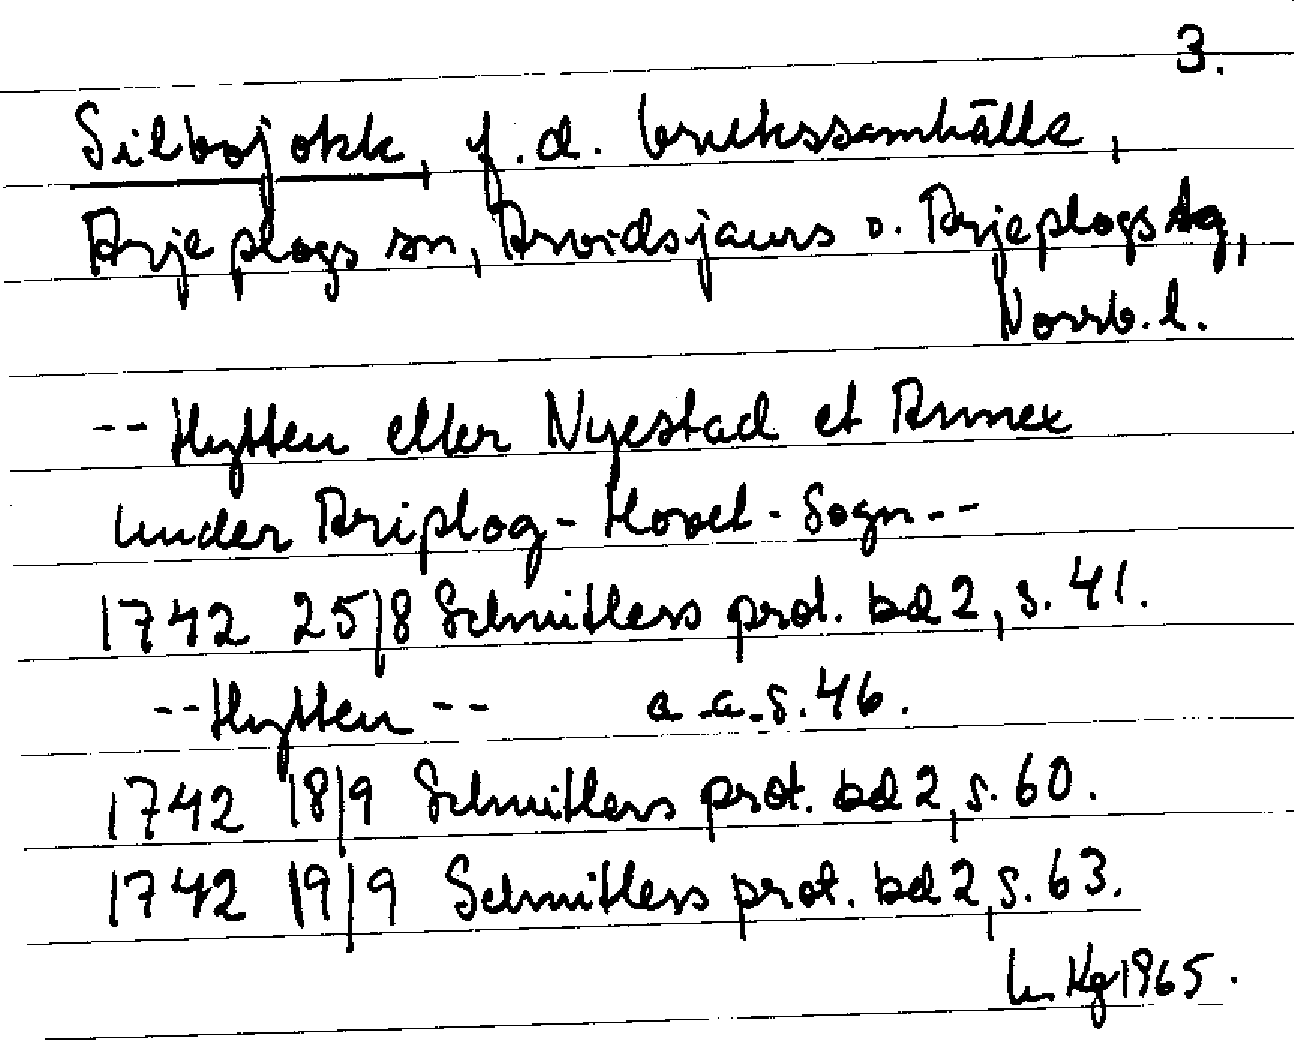 3.
Silbojokk, f.d. brukssamhälle,
Arjeplogs sn, Arvidsjaurs o. Arjeplogs tg,
Norrb.l.
-- Hytten eller Nyestad et Annex
under Ariplog-Hovet-Sogn--
1742 25/8 Schnitlers prot. bd 2, s. 41.
--Hytten-- a.a.s. 46.
1742 18/9 Schnitlers prot. bd 2, s. 60.
1742 19/9 Schnitlers prot. bd 2, s. 63.
Kg 1965.